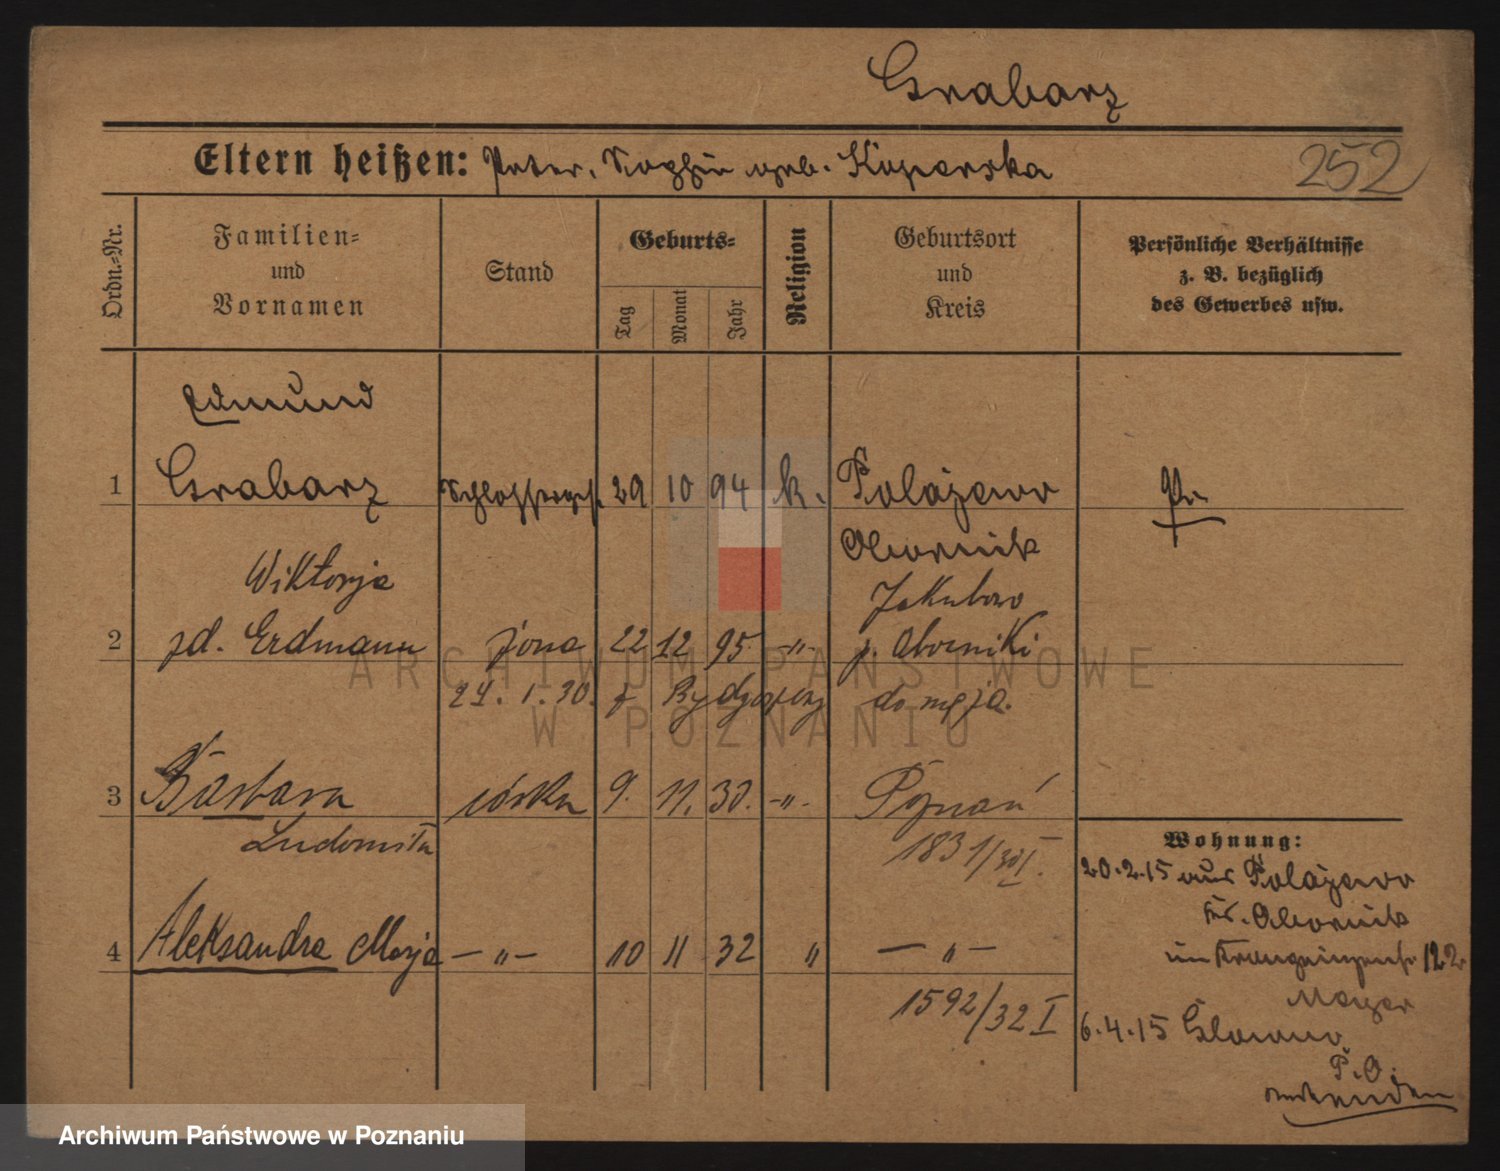 Grabarz
Eltern heißen: Peter, Sophie geb. Koperska
252
Ordn.-Nr.
Familien-
und
Vornamen
Stand
Geburts-
Tag
Monat
Jahr
Religion
Geburtsort
und
Kreis
Persönliche Verhältnisse
z. B. bezüglich
des Gewerbes usw.
Edmund
1 Grabarz Schlosserges. 29 10 94 k. Polajewo Pr.
Obornik
Wiktorja Jakubowo
2 zd. Erdmann żona 22 12 95 -"- p. Oborniki
24. 1. 30. z Bydgoszczy do męża.
3 Barbara córka 9. 11. 30. -"- Poznań
Ludomiła 1831/30 I.
4 Aleksandra Marja -"- 10 11 32 " -"-
1592/32 I
Wohnung:
20.2.15 aus Polajewo
Kr. Obornik
in Kronprinzenstr 122
Meyer
6.4.15 Glowno
P.O.